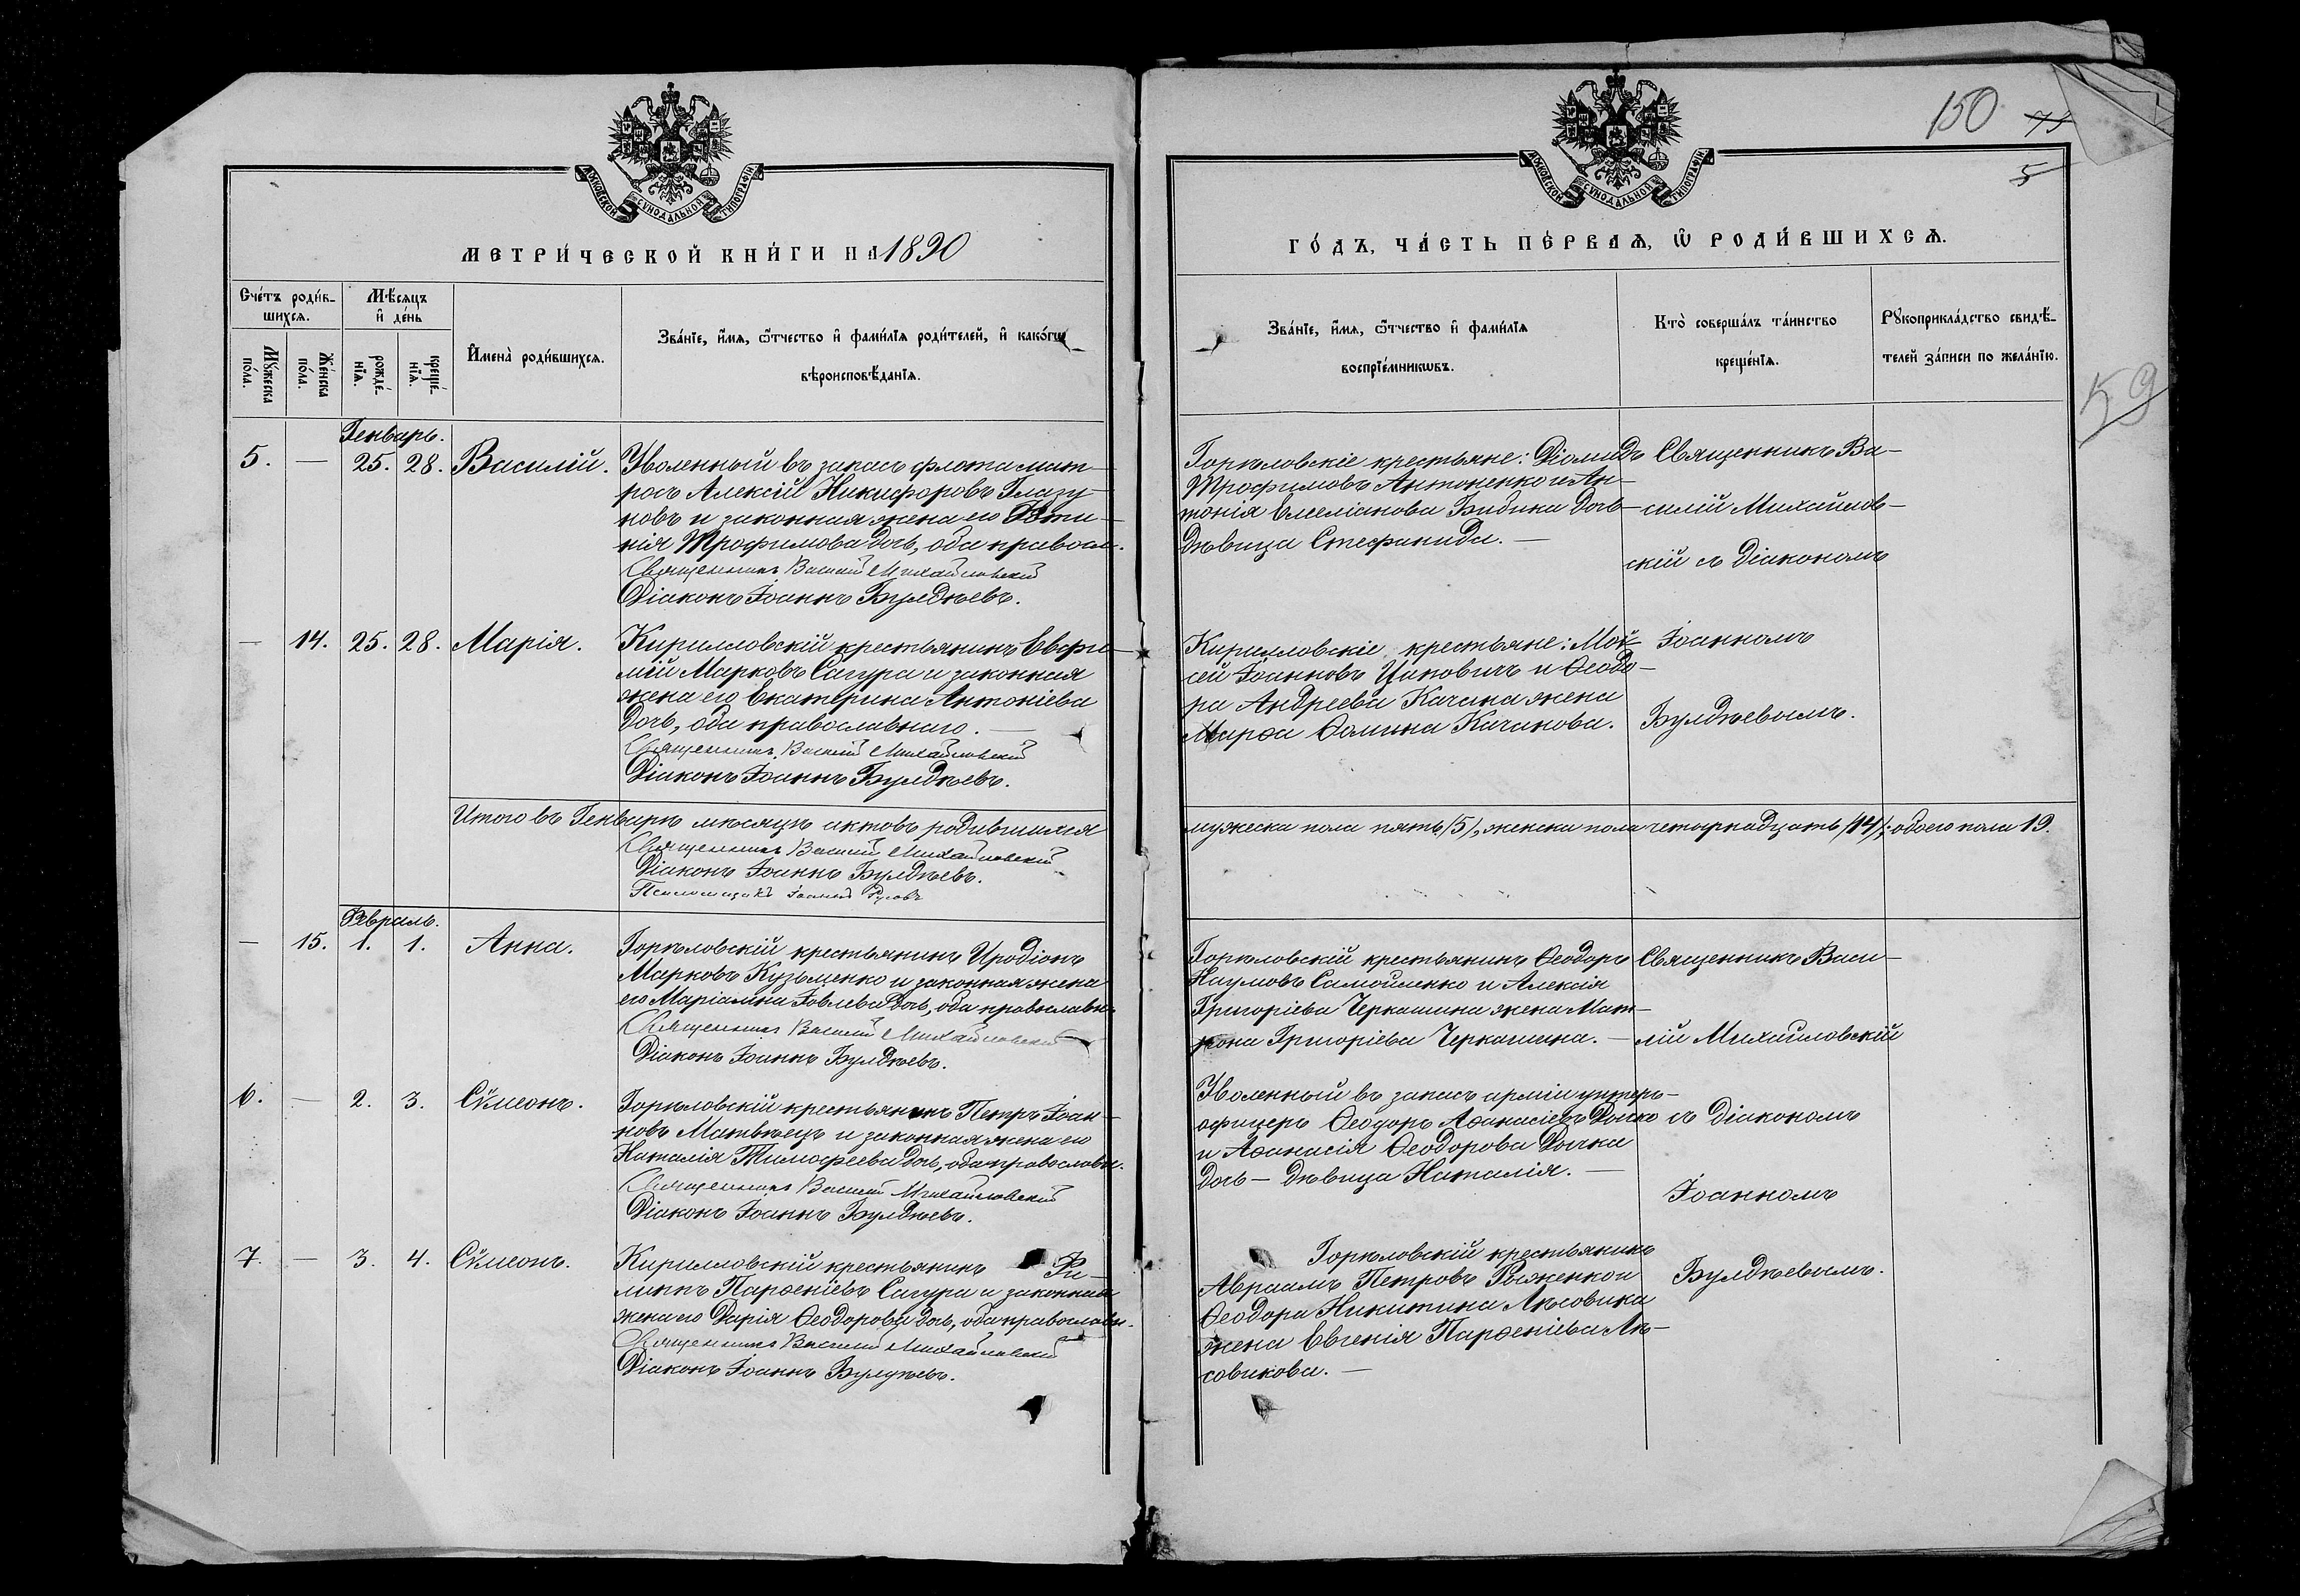 МОСКОВСКОЙ СѴНОДАЛЬНОЙ ТИПОГРАФІИ
МЕТРИ́ЧЕСКОЙ КНИ́ГИ НА 1890
Сче́тъ роди́в-
шихсѧ.
Мѣ́сѧцъ
и҆ де́нь
Мꙋ́жеска
по́ла.
Же́нска
по́ла.
рожде́-
нїѧ.
креще́-
нїѧ.
И҆мена̀ роди́вшихсѧ.
Зва́нїе, и҆́мѧ, ѻ҆́тчество и҆ фами́лїѧ роди́телей, и҆ како́гѡ
вѣроисповѣ́данїѧ.
Генварь.
5. — 25. 28. Василій. Уволенный въ запасъ флота мат-
росъ Алексій Никифоровъ Глазу-
новъ и законная жена его Фоти-
нія Трофимова дочь, оба правосл.
Священникъ Василій Михайловскій
Діаконъ Іоаннъ Булдѣевъ.
— 14. 25. 28. Марія. Кирилловскій крестьянинъ Евфи-
мій Марковъ Сагура и законная
жена его Екатерина Антоніева
дочь, оба православнаго. —
Священникъ Василій Михайловскій
Діаконъ Іоаннъ Булдѣевъ.
Итого въ Генварѣ мѣсяцѣ актовъ родившихся
Священникъ Василій Михайловскій
Діаконъ Іоаннъ Булдѣевъ.
Псаломщикъ Іоаннъ
Февраль.
— 15. 1. 1. Анна. Горѣловскій крестьянинъ Иродіонъ
Марковъ Кузьменко и законная жена
его Маріамна Іовлева дочь, оба православн.
Священникъ Василій Михайловскій
Діаконъ Іоаннъ Булдѣевъ.
6. — 2. 3. Сѷмеонъ. Горѣловскій крестьянинъ Петръ Іоан-
новъ Матвѣецъ и законная жена его
Наталія Тимофеева дочь, оба православн.
Священникъ Василій Михайловскій
Діаконъ Іоаннъ Булдѣевъ.
7. — 3. 4. Сѷмеонъ. Кирилловскій крестьянинъ Фи-
липпъ Парѳеніевъ Сагура и законная
жена его Дарія Ѳеодорова дочь, оба православн.
Священникъ Василій Михайловскій
Діаконъ Іоаннъ Булдѣевъ.
150 75
5
МОСКОВСКОЙ СѴНОДАЛЬНОЙ ТИПОГРАФІИ
ГО́ДЪ, ЧА́СТЬ ПЕ́РВАѦ, Ѽ РОДИ́ВШИХСѦ.
Зва́нїе, и҆́мѧ, ѻ҆́тчество и҆ фами́лїѧ
воспрїе́мникѡвъ.
Кто̀ соверша́лъ та́инство
креще́нїѧ.
Рꙋкоприкла́дство свидѣ́-
телей за́писи по жела́нїю.
Горѣловскіе крестьяне: Діомидъ
Трофимовъ Антоненко и Ан-
тонія Емеліанова Бидика дочь —
дѣвица Стефанида. —
Священникъ Ва-
силій Михайлов-
скій съ Діакономъ
Іоанномъ
Булдѣевымъ.
Кирилловскіе крестьяне: Мой-
сей Іоанновъ Цаковичъ и Ѳеодо-
ра Андреева Качана жена
Марѳа Ѳомина Качанова.
мужеска пола пять /5/, женска пола четырнадцать /14/; обоего пола 19.
Горѣловскій крестьянинъ Ѳеодоръ
Наумовъ Самойленко и Алексія
Григоріева Черкашина жена Мат-
рона Григоріева Черкашина. —
Священникъ Васи-
лій Михайловскій
съ Діакономъ
Іоанномъ
Булдѣевымъ.
Уволенный въ запасъ арміи унтеръ-
офицеръ Ѳеодоръ Аѳанасіевъ
и Аѳанасія Ѳеодорова
дочь — дѣвица Наталія. —
Горѣловскій крестьянинъ
Авраамъ Петровъ Рыженко и
Ѳеодора Никитина Лѣсовика
жена Евгенія Парѳеніева Лѣ-
совикова. —